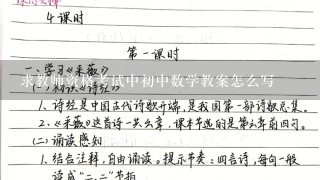 4课时
第一课时
一、学习《采薇》
求教师资格考试中初中数学教案怎么写
(一)初识《诗经》
1、诗经是中国古代诗歌开端,是我国第一部诗歌总集。
2、《采薇》这首诗一共六章,课本节选的是第六章前四句。
(二)诵读感知
1、结合注释,自由诵读。提示节奏:四言诗,每句一般
读成“二、二”节拍